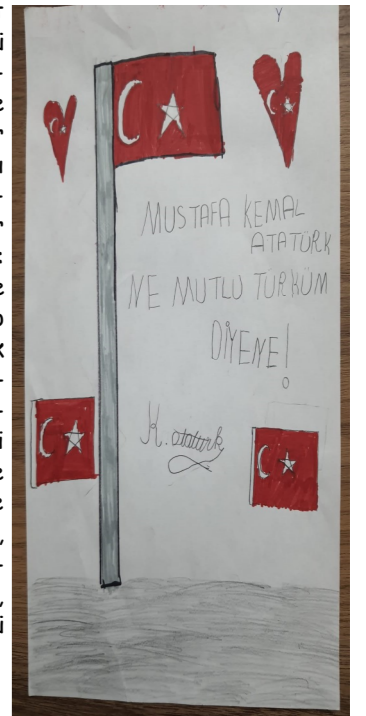 Y
MUSTAFA KEMAL
ATATÜRK
NE MUTLU TÜRKÜM
DİYENE!
K. atatürk